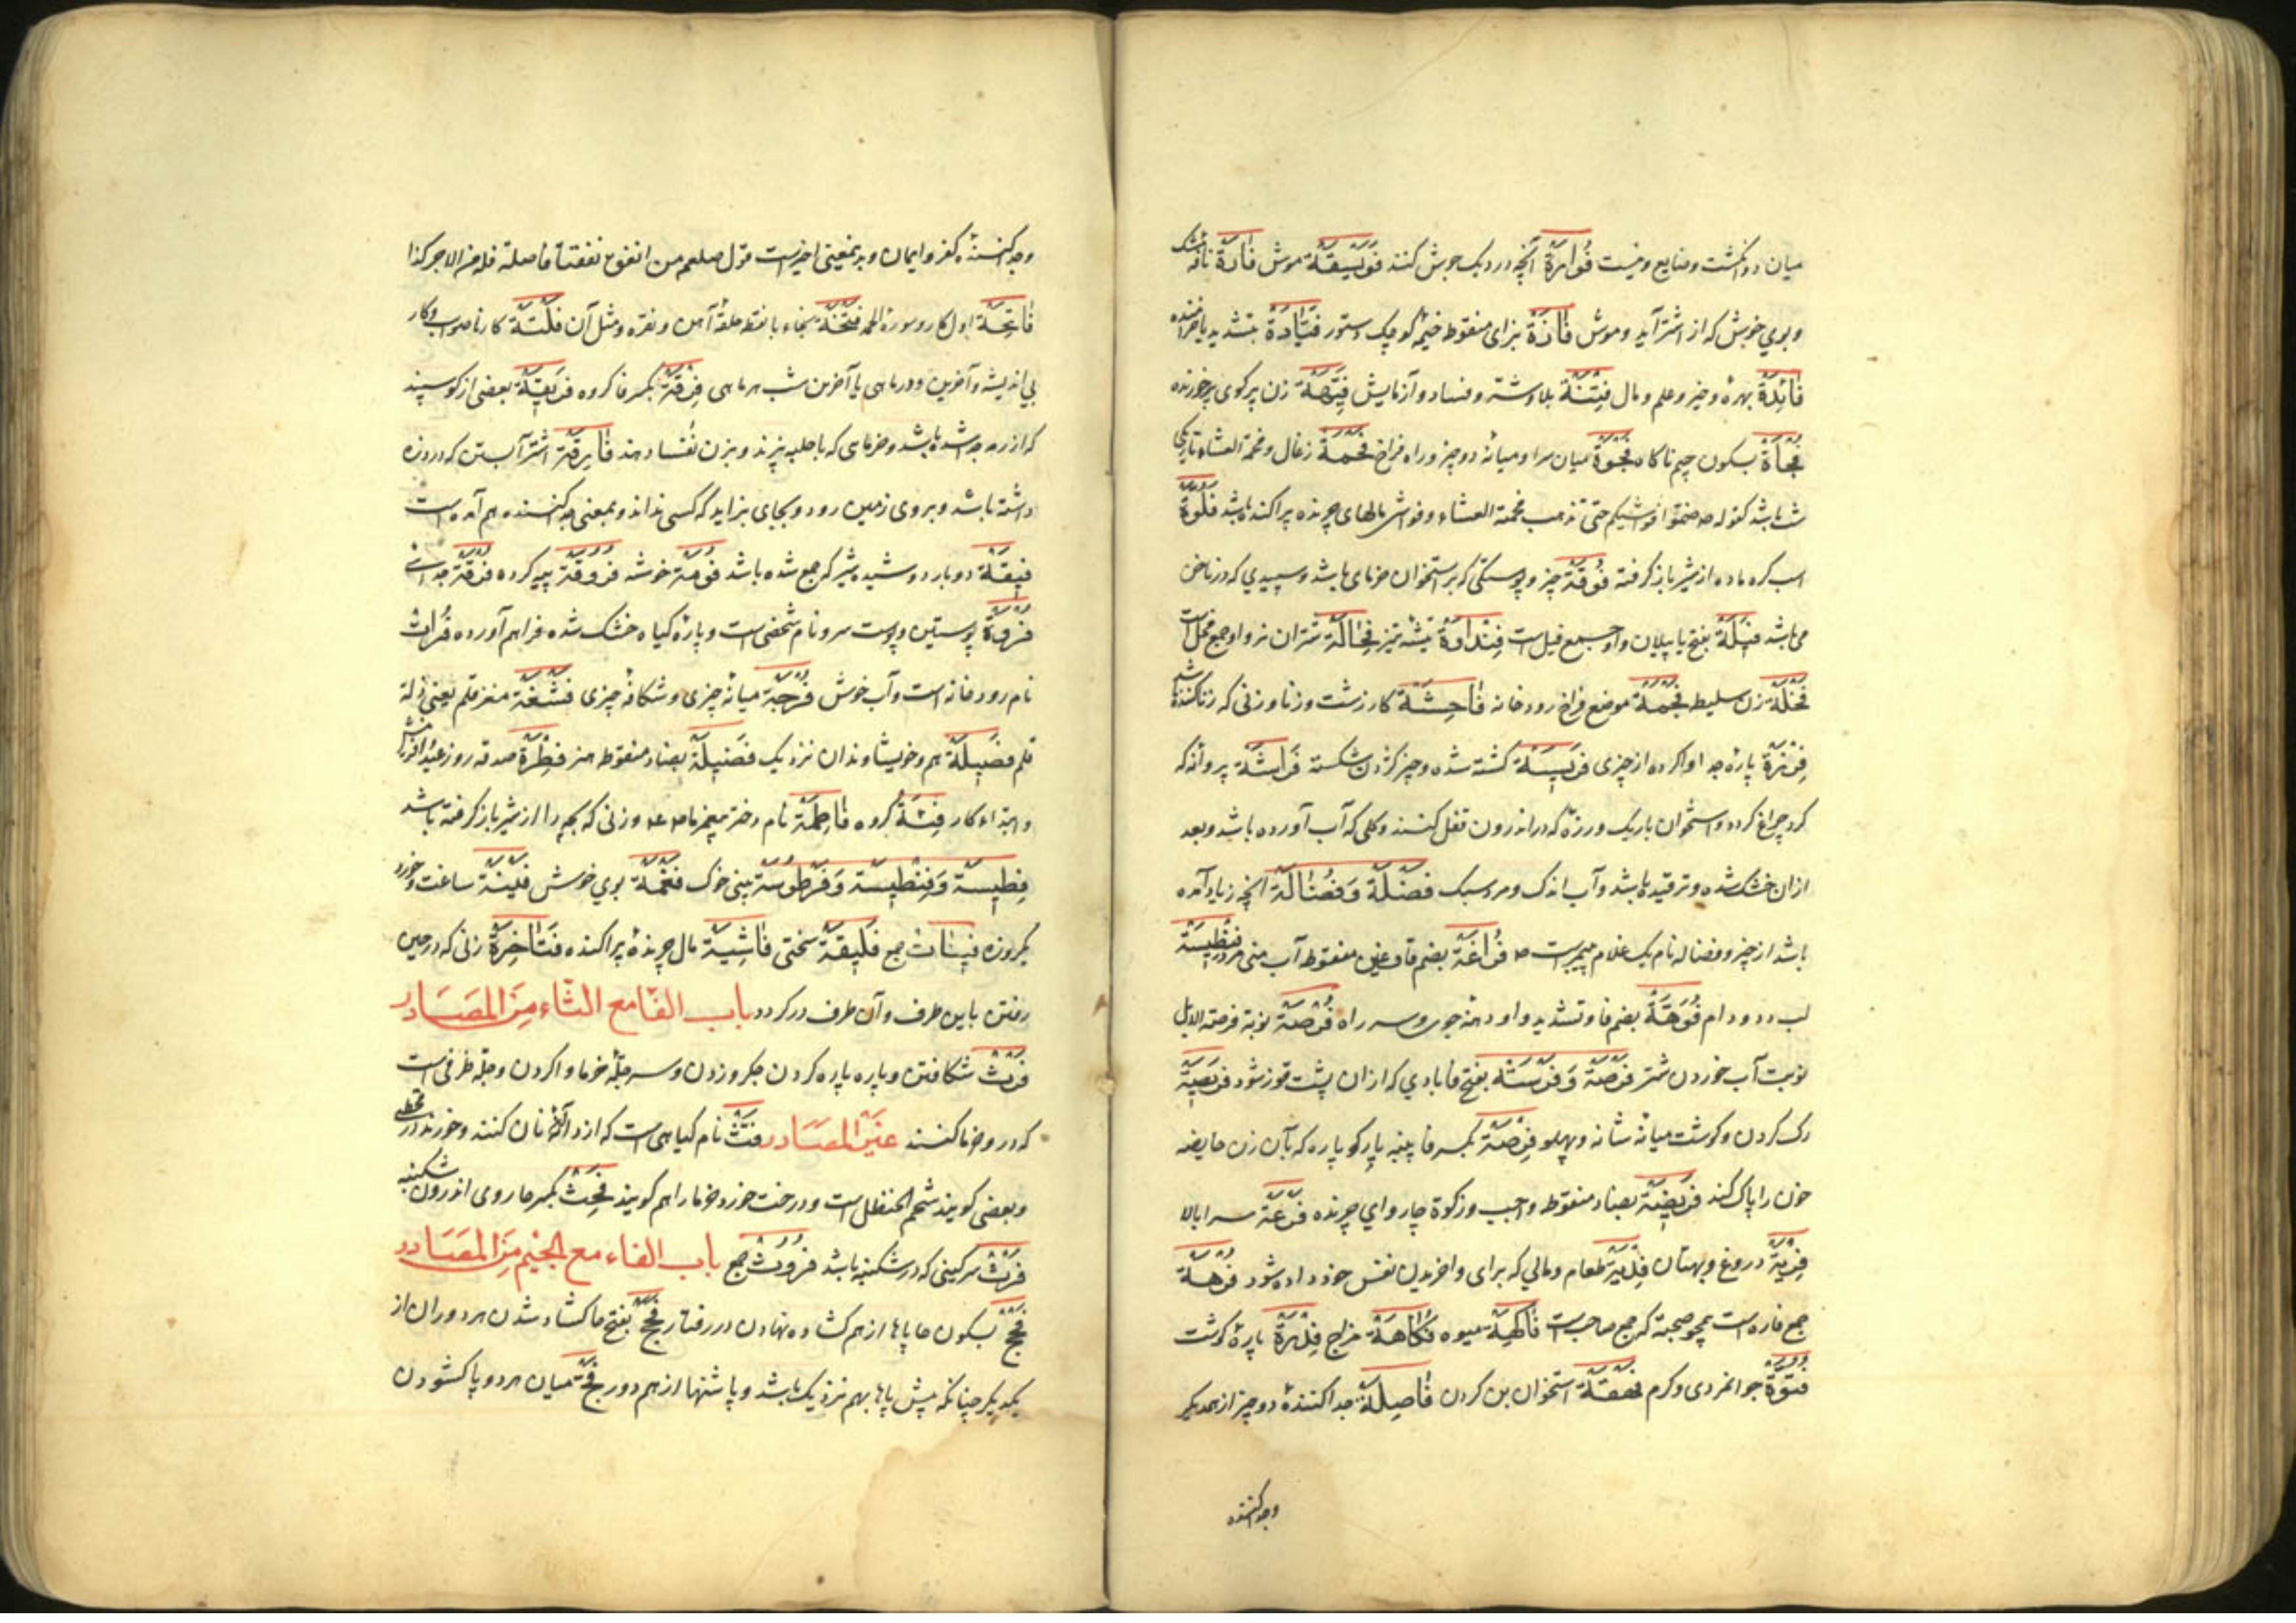 میان دو انگشت و ضایع و نیست فُوَارَةٌ آنچه در دیک جوش کنند فُوَیْسِقَةٌ موش فَارَةٌ نافه مشک
و بوی خوش که از اشتر آید و موش فَازَةٌ بزای منقوط خیمه کوچک دستور فَیَّادَةٌ بتشدید یا خرامنده
فَائِدَةٌ بهره و خیر و علم و مال فِتْنَةٌ بلا و شتر و فساد و آزمایش فَیِّهَةٌ زن پر کوی پر خورنده
فَجْأَةٌ بسکون جیم ناکاه فَجْوَةٌ میان سرا و میانه دو چیز و راه فراخ فَحْمَةٌ زغال و فحمة العشاء تاریکی
شب باشد کقوله ص ضموا فواشیکم حتی تذهب فحمة العشاء و فواشی مالهای چرنده پراکنده باشد فَلُوَّةٌ
اسب کره ماده از شیر باز کرفته فُوقَةٌ چیز و پوستکی که بر استخوان خرمای باشد و سپیدی که در ناخن
می باشد فِیَلَةٌ بفتح یا پیلان و او جمع فیل است فِنْدَاوَةٌ تیشه تیز فِحَالَةٌ شتران نر و او جمع فحل است
فَحْلَةٌ زن سلیط فَجْمَةٌ موضع فراخ رودخانه فَاحِشَةٌ کار زشت و زنا و زنی که زنا کننده باشد
فِزْرَةٌ پاره جدا واکرده از چیزی فَرِیسَةٌ کشته شده و چیز کردن شکسته فَرَاشَةٌ پروانه که
کرد چراغ کردد و استخوان باریک و رزه که در اندرون قفل کنند و کلی که آب آورده باشد و بعد
از ان خشک شده و ترقیده باشد و آب اندک و مرد سبک فَضْلَةٌ وَفُضَالَةٌ آنچه زیاد آمده
باشد از چیز و فضاله نام یک غلام پیمبر است ص فُرَاغَةٌ بضم فا و غین منقوط آب منی مرد فِنْطِیسَةٌ
لب دد و دام فُوَّهَةٌ بضم فا و تشدید واو دهنه جوی و سر راه فُرْصَةٌ نوبة فرصة الابل
نوبت آب خوردن شتر فَرْصَةٌ وَفَرْسَةٌ بفتح فا بادی که از ان پشت قوز شود فَرِیصَةٌ
رک کردن و کوشت میانه شانه و پهلو فِرْصَةٌ بکسر فا پنبه پاره کو پاره که بآن زن حایضه
خون را پاک کند فَرِیضَةٌ بضاد منقوط واجب و زکوة چاروای چرنده فَرْعَةٌ سر ابالا
فِرْیَةٌ دروغ و بهتان فِدْیَةٌ طعام و مالی که برای واخریدن نفس خود داده شود فُرْهَةٌ
جمع فاره است همچو صحبة که جمع صاحب است فَاکِهَةٌ میوه فُکَاهَةٌ مزاح فِدْرَةٌ پاره کوشت
فُتُوَّةٌ جوانمردی و کرم فَهْقَةٌ استخوان بن کردن فَاصِلَةٌ جدا کننده دو چیز از همدیکر
وجدا کننده
وجدا کننده کفر و ایمان و بدین معنی اخیر است قول صلعم من انفق نفقة فاصلة فله من الاجر کذا
فَاتِحَةٌ اول کار و سورة الحمد فَتْخَةٌ بخاء با نقطه حلقه آهن و نقره و مثل آن فَلْتَةٌ کار ناصواب و کار
بی اندیشه و آخرین دور ماهی یا آخرین شب هر ماهی فِرْقَةٌ بکسر فا کروه فَرِیقَةٌ بعضی از کوسپند
که از رمه جدا شده باشد و خرمای که با حلبه پزند و بزن نفسا دهند فَارِقَةٌ اشتر آبستن که درد زه
داشته باشد و بروی زمین رود و بجای بزاید که کسی نداند و بمعنی جدا کننده هم آمده است
فِیقَةٌ دو بار دوشیده شیر که جمع شده باشد فُومَةٌ خوشه فَرُوقَةٌ پیه کرده فُرْقَةٌ جدائی
فَرْوَةٌ پوستین و پوست سر و نام شخصی است و پاره کیاه خشک شده فراهم آورده فُرَاتٌ
نام رودخانه است و آب خوش فُرْجَةٌ میانه چیزی و شکافه چیزی فَشْغَةٌ مغز قلم یعنی ذلة
قلم فَصِیلَةٌ هم و خویشاوندان نزدیک فَضِیلَةٌ بضاد منقوط هنر فِطْرَةٌ صدقه روز عید و آفرینش
و ابتداء کار فِئَةٌ کروه فَاطِمَةٌ نام دختر پیغمبر ما ص و زنی که بچه را از شیر باز کرفته باشد
فِطِیسَةٌ وَفِنْطِیسَةٌ وَفَرْطُوسَةٌ بینی خوک فَغْمَةٌ بوی خوش فَیْنَةٌ ساعت و خورد
یکروزه فَیْنَاتٌ جمع فَلِیقَةٌ سختی فَاشِیَةٌ مال چرنده پراکنده فَتَاخِرَةٌ زنی که در حین
رفتن باین طرف و آن طرف در کردد باب الفا مع الثاء من المصادر
فَرْثٌ شکافتن و پاره پاره کردن جکر و زدن و سر جله خرما واکردن و جله ظرفی است
که در و خرما کنند عین المصادر فَثٌّ نام کیاهی است که از دانه آن نان کنند و خورند در قحطی
و بعضی کویند شحم الحنظل است و درخت خورد خرما را هم کویند فَحِثٌ بکسر حا روی اندرون شکنبه
فَرْثٌ سرکینی که در شکنبه باشد فُرُوثٌ جمع باب الفاء مع الجیم من المصادر
فَحْجٌ بسکون حا پاها از هم کشاده نهادن در رفتار فَحَجٌ بفتح حا کشاد شدن هر دو ران از
یکدیکر چنانکه پیش پاها بهم نزدیک باشد و پاشنها از هم دور فَجٌّ میان هر دو پا کشودن